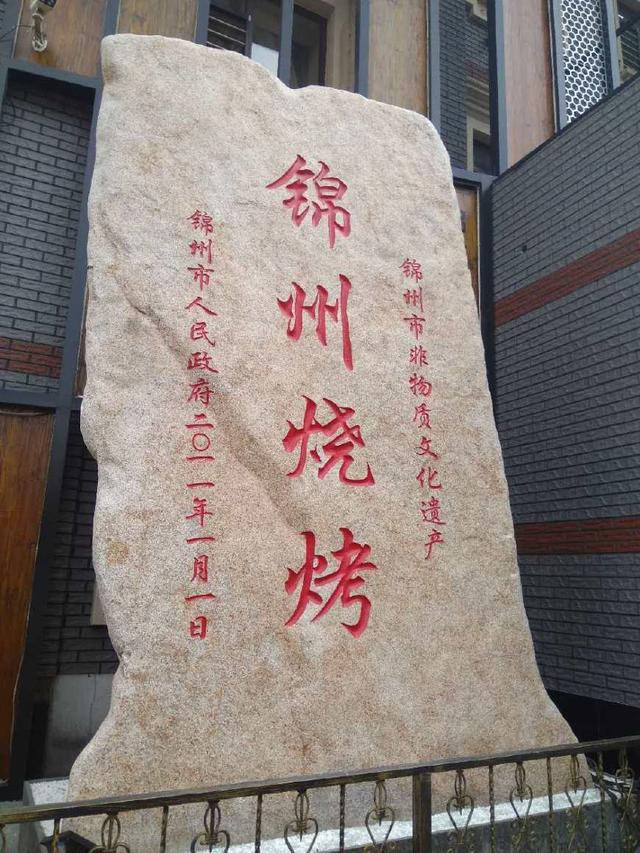 锦州市非物质文化遗产
锦州烧烤
锦州市人民政府二〇一一年一月一日